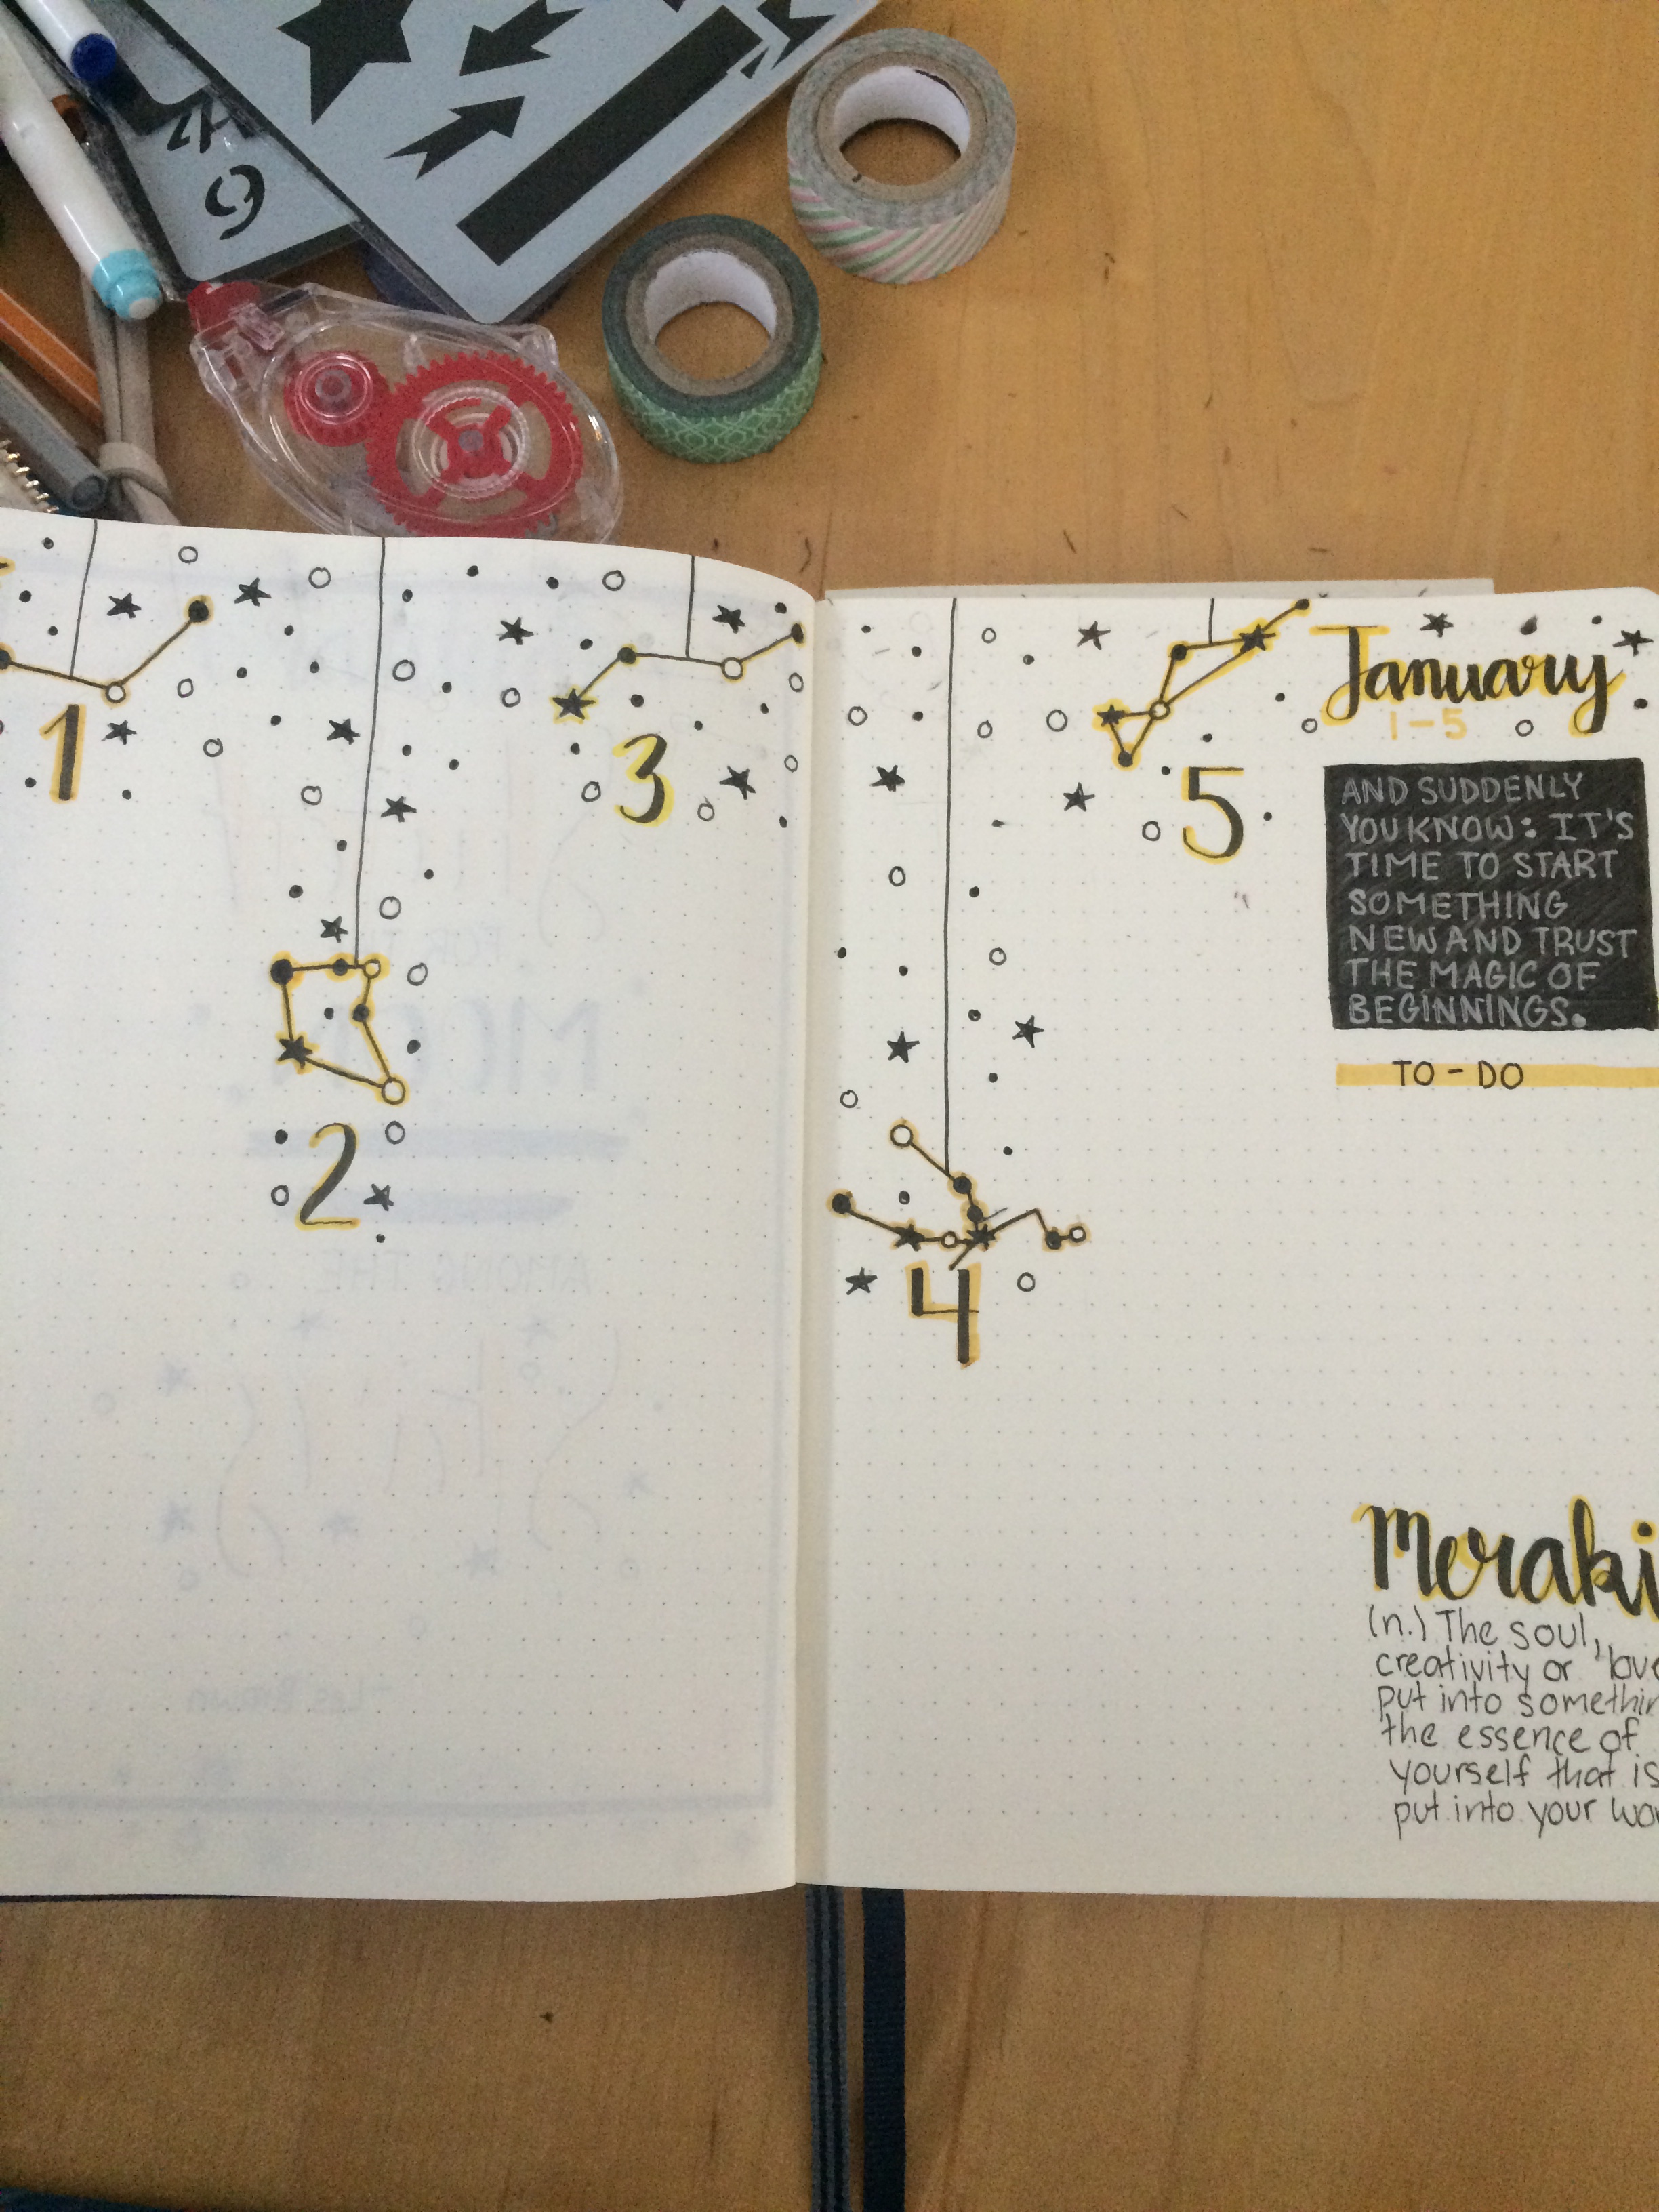 4
9
1
2
3
4
5
January
1-5
AND SUDDENLY
YOU KNOW: IT'S
TIME TO START
SOMETHING
NEW AND TRUST
THE MAGIC OF
BEGINNINGS.
TO-DO
Meraki
(n.) The soul,
creativity or "love
put into somethin
the essence of
yourself that is
put into your wo
FOR THE
MOON
AMONG THE
-Les Brown